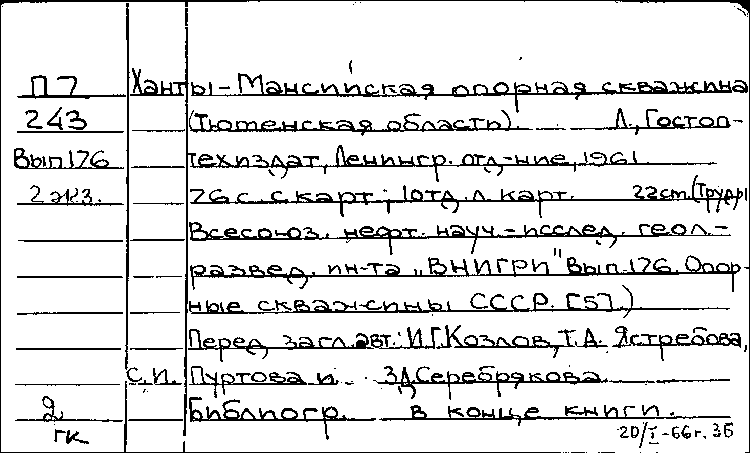 П7 Ханты-Мансийская опорная скважина
243 (Тюменская область). Л., Гостоп-
Вып.176 техиздат, Ленингр. отд-ние, 1961.
2 экз. 76 с. с карт.; 1 отд. л. карт. 22 cm. (Труды
Всесоюз. нефт. науч.-исслед. геол.-
развед. ин-та "ВНИГРИ" Вып.176. Опор-
ные скважины СССР. [5].)
Перед загл. авт.: И.Г.Козлов, Т.А. Ястребова,
С.И. Пуртова и З.Д.Серебрякова
2 Библиогр. в конце книги.
гк 20/I-66г. ЗБ